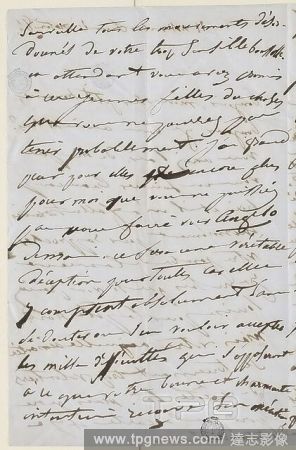 surveille tous les mouvements désor-
donnés de votre trop sensible
en attendant vous avez promis
à ces jeunes filles des choses
que vous ne pouvez pas
tenir probablement. J'ai grand
peur pour elles et encore plus
pour moi, que vous ne puissiez
pas nous faire voir Angelo
ce sera une véritable
déception pour toutes car elles
y comptent absolument
vouloir accepter
les mille difficultés qui s'opposent
à ce que votre bonne et charmante
intention reçoive
TPG
www.tpgnews.com / 達志影像